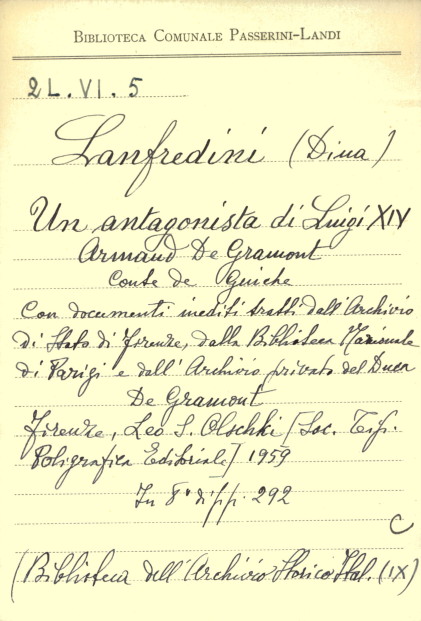 BIBLIOTECA COMUNALE PASSERINI-LANDI
2L.VI.5
Lanfredini (Dina)
Un antagonista di Luigi XIV
Armand De Gramont
Conte de Guiche
Con documenti inediti tratti dall'Archivio
di Stato di Firenze, dalla Biblioteca Nazionale
di Parigi e dall'Archivio privato del Duca
De Gramont
Firenze, Leo S. Olschki [Soc. Tip.
Poligrafica Editoriale] 1959
In 8° di pp. 292
C
(Biblioteca dell'Archivio Storico Ital. (IX)